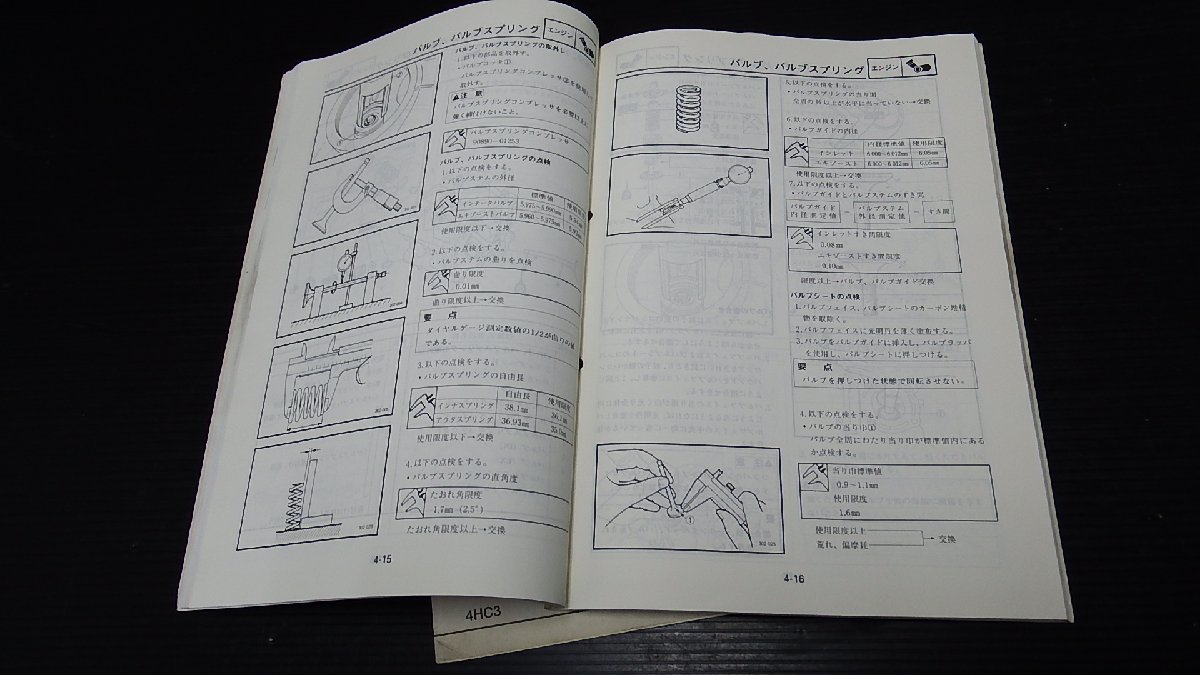 バルブ、バルブスプリング エンジン
バルブ、バルブスプリングの取外し
1.以下の部品を取外す。
・バルブコッタ①
バルブスプリングコンプレッサ②を使用して
取外す。
▲注 意
バルブスプリングコンプレッサを必要以上に
強く締付けないこと。
バルブスプリングコンプレッサ
90890-01253
バルブ、バルブスプリングの点検
1.以下の点検をする。
・バルブステムの外径
標準値 使用限度
インテークバルブ 5.975~5.990mm
エキゾーストバルブ 5.960~5.975mm
使用限度以下→交換
2.以下の点検をする。
・バルブステムの曲りを点検
曲り限度
0.01mm
曲り限度以上→交換
要 点
ダイヤルゲージ測定数値の1/2が曲りの値
である。
3.以下の点検をする。
・バルブスプリングの自由長
自由長 使用限度
インナスプリング 38.1mm 36.1mm
アウタスプリング 36.93mm 35.0mm
使用限度以下→交換
4.以下の点検をする。
・バルブスプリングの直角度
たおれ角限度
1.7mm (2.5°)
たおれ角限度以上→交換
4-15
バルブ、バルブスプリング エンジン
5.以下の点検をする。
・バルブスプリングの当り面
全周の 以上が水平に当っていない→交換
6.以下の点検をする。
・バルブガイドの内径
内径標準値 使用限度
インレット 6.000~6.012mm 6.05mm
エキゾースト 6.000~6.012mm 6.05mm
使用限度以上→交換
7.以下の点検をする。
・バルブガイドとバルブステムのすき間
バルブガイド内径測定値 - バルブステム外径測定値 = すき間
インレットすき間限度
0.08mm
エキゾーストすき間限度
0.10mm
限度以上→バルブ、バルブガイド交換
バルブシートの点検
1.バルブフェイス、バルブシートのカーボン堆積
物を取除く。
2.バルブフェイスに光明丹を薄く塗布する。
3.バルブをバルブガイドに挿入し、バルブラッパ
を使用し、バルブシートに押しつける。
要 点
バルブを押しつけた状態で回転させない。
4.以下の点検をする。
・バルブの当り巾①
バルブ全周にわたり当り巾が標準値内にある
か点検する。
当り巾標準値
0.9~1.1mm
使用限度
1.6mm
使用限度以上
荒れ、偏摩耗 → 交換
①
302-025
4-16
4HC3